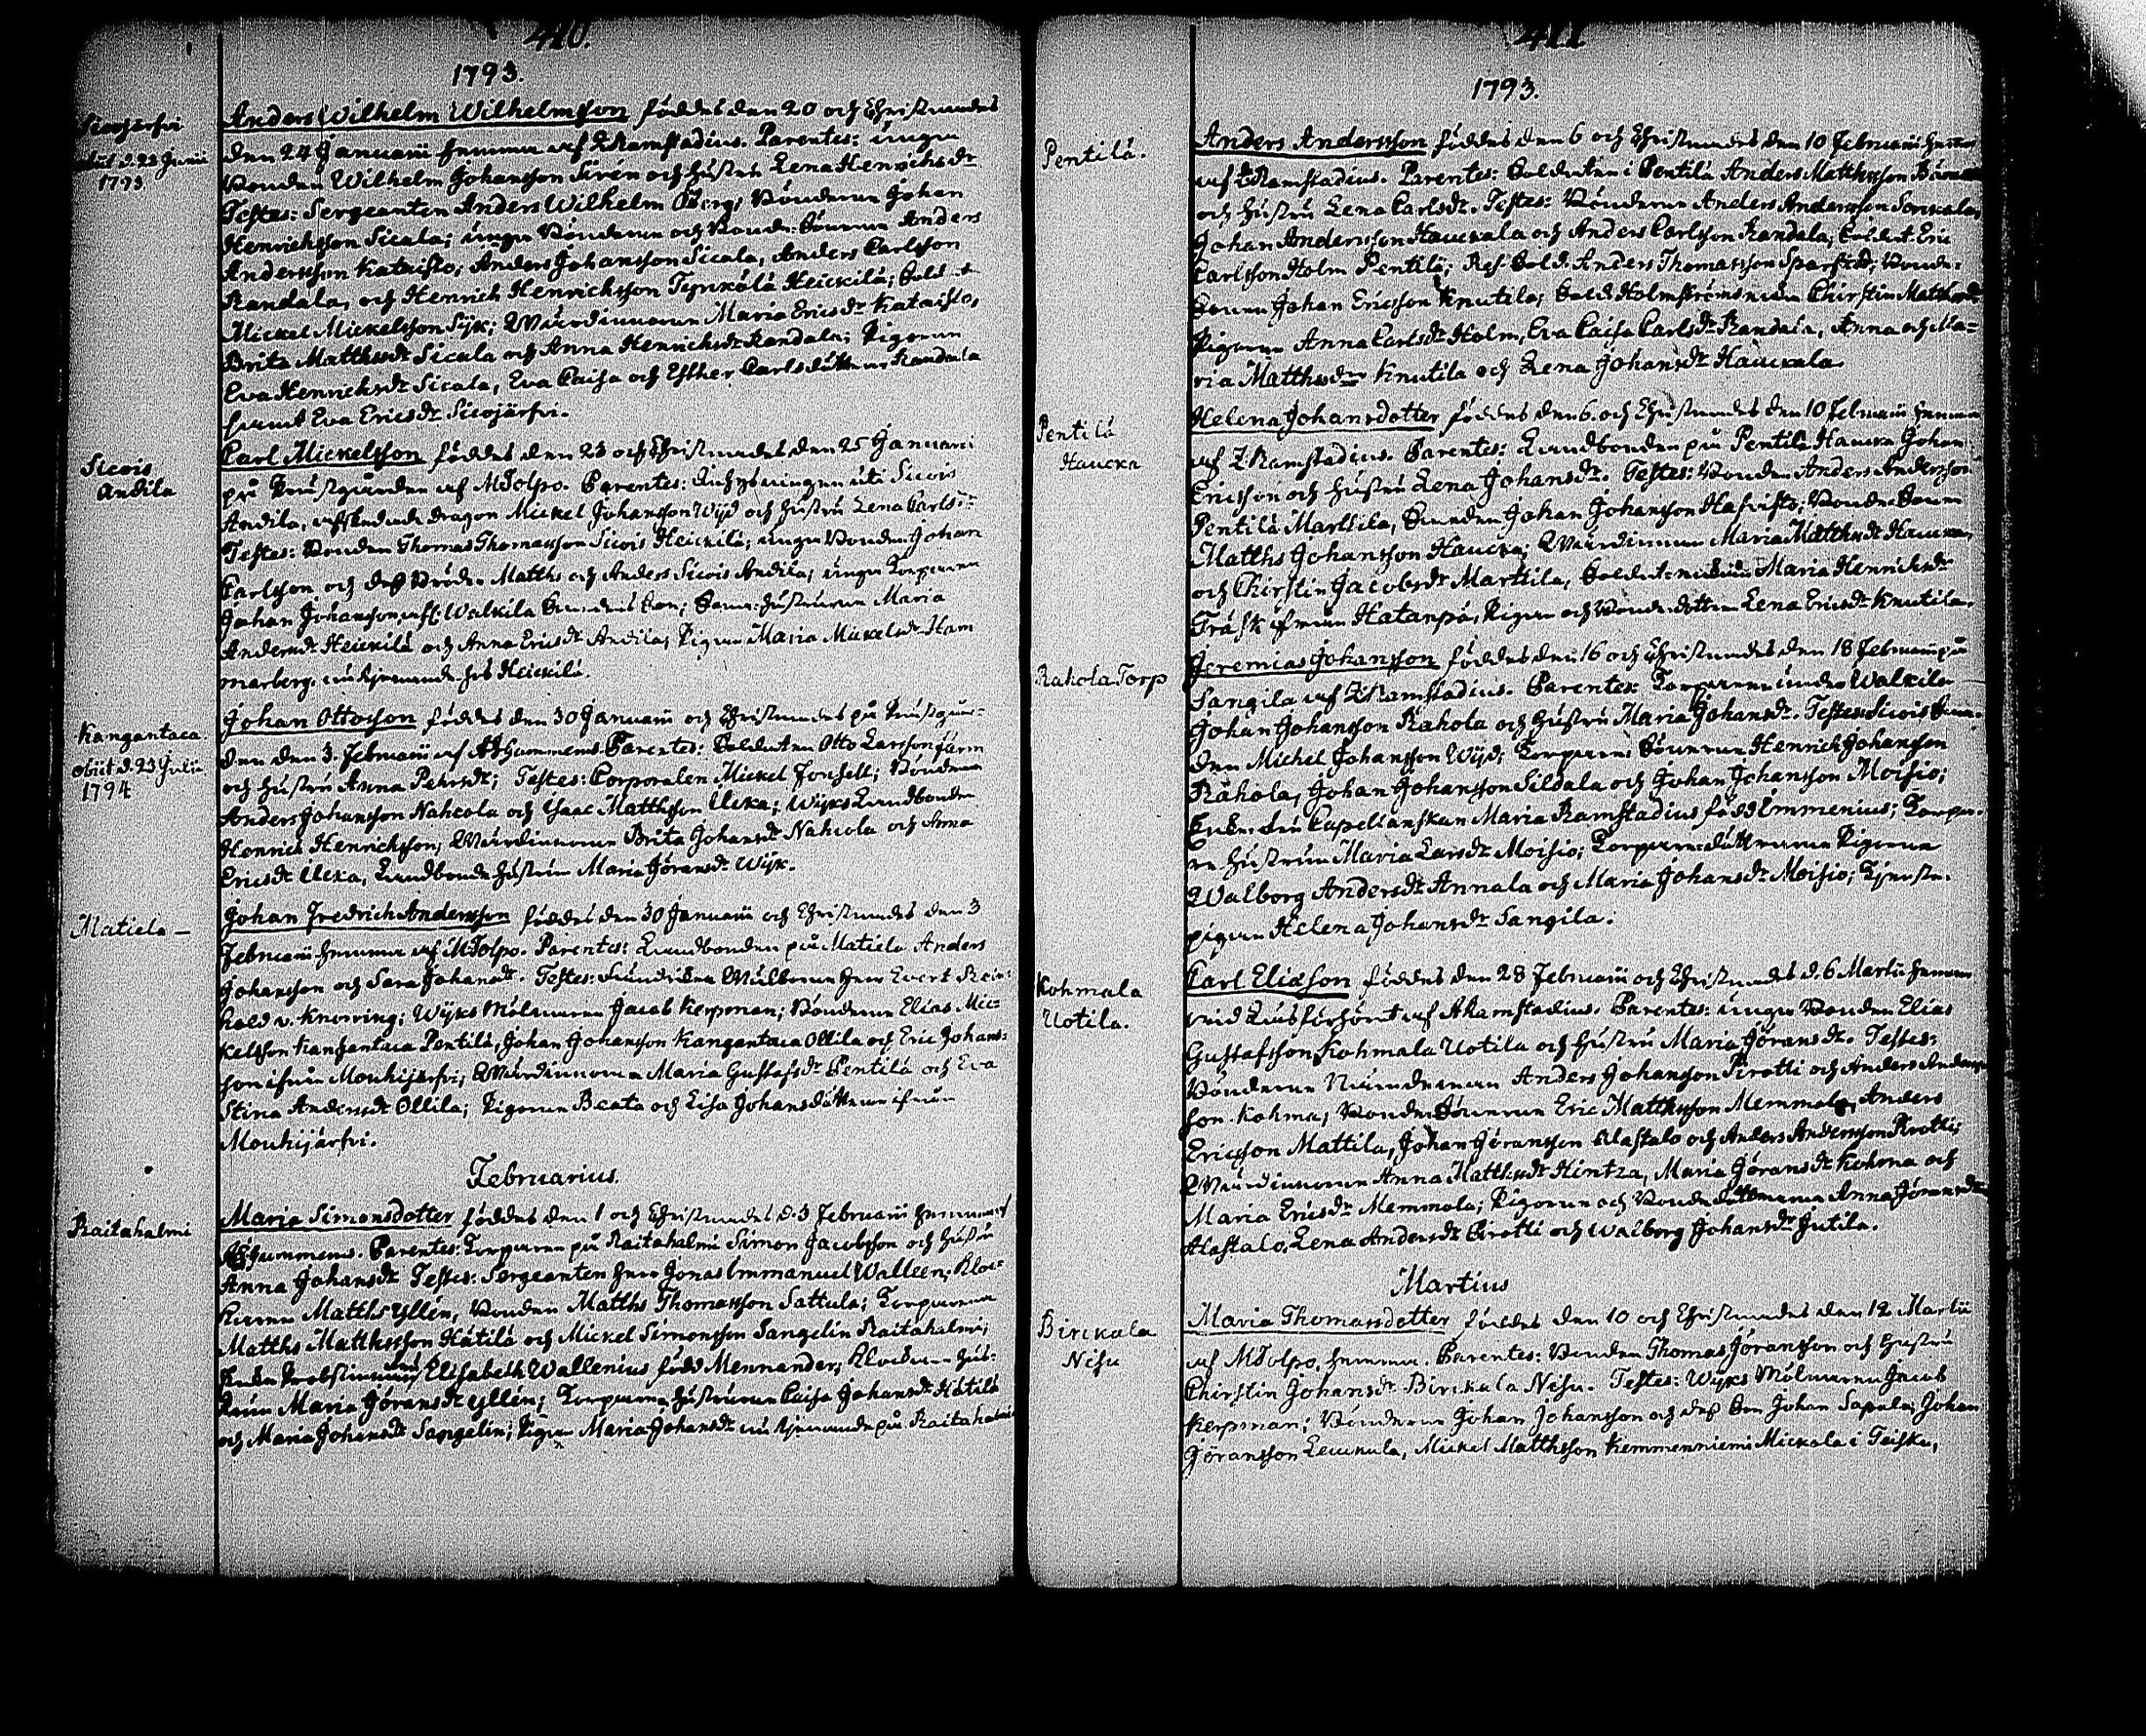 410.
1793.
Siwojerfvi
obiit d. 23 Junii
1793.
Anders Wilhelm Wilhelmsson föddes den 20 och Christnades
den 24 Januarii hemma af Z Ramstadius. Parentes: unge
Bonden Wilhelm Johansson Sirén och hustru Lena Henrichsdr
Testes: Sergeanten Anders Wilhelm Berg; Bönderne Johan
Henrichsson Sicala; unge Bönderne och Bonde-Sönerne Anders
Andersson Kataisto; Anders Johansson Sicala, Anders Carlsson
Randala, och Henrich Henrichsson Heickilä; Sold
Mickel Mickelsson Syk; Wärdinnorne Maria Ericsdr Kataisto,
Brita Matthsdr Sicala och Anna Henrichsdr Randala; Pigorne
Eva Henrichsdr Sicala, Eva Caisa och Esther Carlsdöttrar Randala
samt Eva Ericsdr Sicojärfvi.
Sicois
Andila
Carl Mickelsson föddes den 23 och Christnades den 25 Januarii
på Prästgården af M Tolpo. Parentes: Inhysningen uti Sicois
Andila, afskedade dragon Mickel Johansson Wyd och hustru Lena Carlsdr
Testes: Bonden Thomas Thomasson Sicois Heickilä; unge Bonden Johan
Carlsson och dess Bröder Matths och Anders Sicois Andila; unge Torparen
Johan Johansson Walkila Son; hustrurne Maria
Andersdr Heickilä och Anna Ericsdr Andila; Pigan Maria Mickelsdr Ham
marberg, nu tjenande hos Heickilä.
Kangantaca.
obiit d. 23 Julii
1794
Johan Ottosson föddes den 30 Januarii och Christnades på Prästgår-
den den 3. Februarii af Hummerus. Parentes: Soldaten Otto Larsson Järn
och hustru Anna Pehrsdr; Testes: Corporalen Mickel Forssell; Bönderne
Anders Johansson Nahcola och Isaac Matthsson Ucka; Wyks Landbonden
Henrich Henrichsson; Wärdinnorne Brita Johansdr Nahcola och Anna
Ericsdr Ucka, Landbonde hustrun Maria Göransdr Wyk.
Matiela -
Johan Fredrich Andersson föddes den 30 Januarii och Christnades den 3
Februarii hemma af M Tolpo. Parentes: Landbonden på Matiela Anders
Johansson och Sara Johansdr. Testes: Wälborne herr Evert Rein-
hold v. Knorring; Wyks Mölnaren Jacob Kerpman; Bönderne Elias Mic-
kelsson Kangantaca Pentilä, Johan Johansson Kangantaca Ollila och Eric Johans-
son ifrån Mouhijärfvi; Wärdinnorna Maria Gustafsdr Pentilä och Eva
Stina Andersdr Ollila; Pigorne Beata och Lisa Johansdöttrar ifrån
Mouhijärfvi.
Februarius.
Raitahalmi
Maria Simonsdotter föddes den 1 och Christnades d. 3 Februarii hemma af
Hummerus. Parentes: Torparen på Raitahalmi Simon Jacobsson och hustru
Anna Johansdr Testes: Sergeanten herr Jonas Immanuel Walleen; Kloc-
karen Matths Yllén, Bonden Matths Thomasson Sattula; Torparena
Matths Matthsson Hätilä och Mickel Simonsson Sangelin Raitahalmi;
Enke Probstinnan Elisabeth Wallenius född Mennander; Klockare hus-
trun Maria Göransdr Yllén; Torpare hustrurne Caisa Johansdr Hätilä
och Maria Johansdr Sangelin; Pigan Maria Johansdr nu tjenande på Raitahalmi
411
1793.
Pentilä.
Anders Andersson föddes den 6 och Christnades den 10 Februarii hemma
af Z Ramstadius. Parentes: Soldaten i Pentilä Anders Matthsson
och hustru Lena Carlsdr. Testes: Bönderne Anders Andersson Sonkala,
Johan Andersson Hauckala och Anders Carlsson Randala; Soldat Eric
Carlsson Holm Pentilä; Res. Sold. Anders Thomasson Sparf; Bonde-
Sonen Johan Ericsson Knutila; Sold. Holmströms Chirstin Matthsdr
Pigorne Anna Carlsdr Holm, Eva Caisa Carlsdr Randala, Anna och Ma-
ria Matthsdr Knutila och Lena Johansdr Hauckala.
Pentilä
Haucka
Helena Johansdotter föddes den 6. och Christnades den 10 Februarii hemma
af Z Ramstadius. Parentes: Landbonden på Pentilä Haucka Johan
Ericsson och hustru Lena Johansdr. Testes: Bonden Anders Andersson
Pentilä Marttila, Johan Johansson Hafvisto; Bonde Sonen
Matths Johansson Haucka; Wärdinnan Maria Matthsdr Haucka,
och Chirstin Jacobsdr Marttila, Maria Henrichsdr
Träsk ifrån Hatanpä, Pigan och Bonde-dottren Lena Ericsdr Knutila.
Rahola Torp
Jeremias Johansson föddes den 16 och Christnades den 18 Februarii på
Sangila af Z Ramstadius. Parentes: Torparen under Walkila
Johan Johansson Rahola och hustru Maria Johansdr. Testes: Sicois
Michel Johansson Wyd; Torpare Sönerne Henrich Johansson
Rahola, Johan Johansson Sildala och Johan Johansson Moisio;
Capellanskan Maria Ramstadius född Emmenius; Torpa-
re hustrun Maria Larsdr Moisio; Torpare döttrarne Pigorne
Walborg Andersdr Annala och Maria Johansdr Moisio; Tjenste-
pigan Helena Johansdr Sangila.
Kohmala
Uotila.
Carl Eliasson föddes den 28 Februarii och Christnades d. 6 Martii hemma
vid Läsförhöret af A Ramstadius. Parentes: unge Bonden Elias
Gustafsson Kohmala Uotila och hustru Maria Göransdr. Testes:
Bönderne Nämdeman Anders Johansson Pirotti och Anders Anders-
son Kohma; Bonde Sönerne Eric Matthsson Memmola, Anders
Ericsson Mattila, Johan Göransson Alastalo och Anders Andersson Pirotti;
Wärdinnorne Anna Matthsdr Hintza, Maria Göransdr Kohma och
Maria Ericsdr Memmola; Pigorne och Bonde döttrarna Anna Göransdr
Alastalo, Lena Andersdr Pirotti och Walborg Johansdr Jutila.
Martius
Birckala
Nihu
Maria Thomasdotter föddes den 10 och Christnades den 12 Martii
af M Tolpo. hemma. Parentes: Bonden Thomas Göransson och hustru
Chirstin Johansdr Birckala Nihu. Testes: Wyks Mölnaren Jacob
Kerpman; Bönderne Johan Johansson och dess Son Johan Sapula, Johan
Göransson Leuckula, Mickel Matthsson Kemmenniemi Mickola i Teisko,